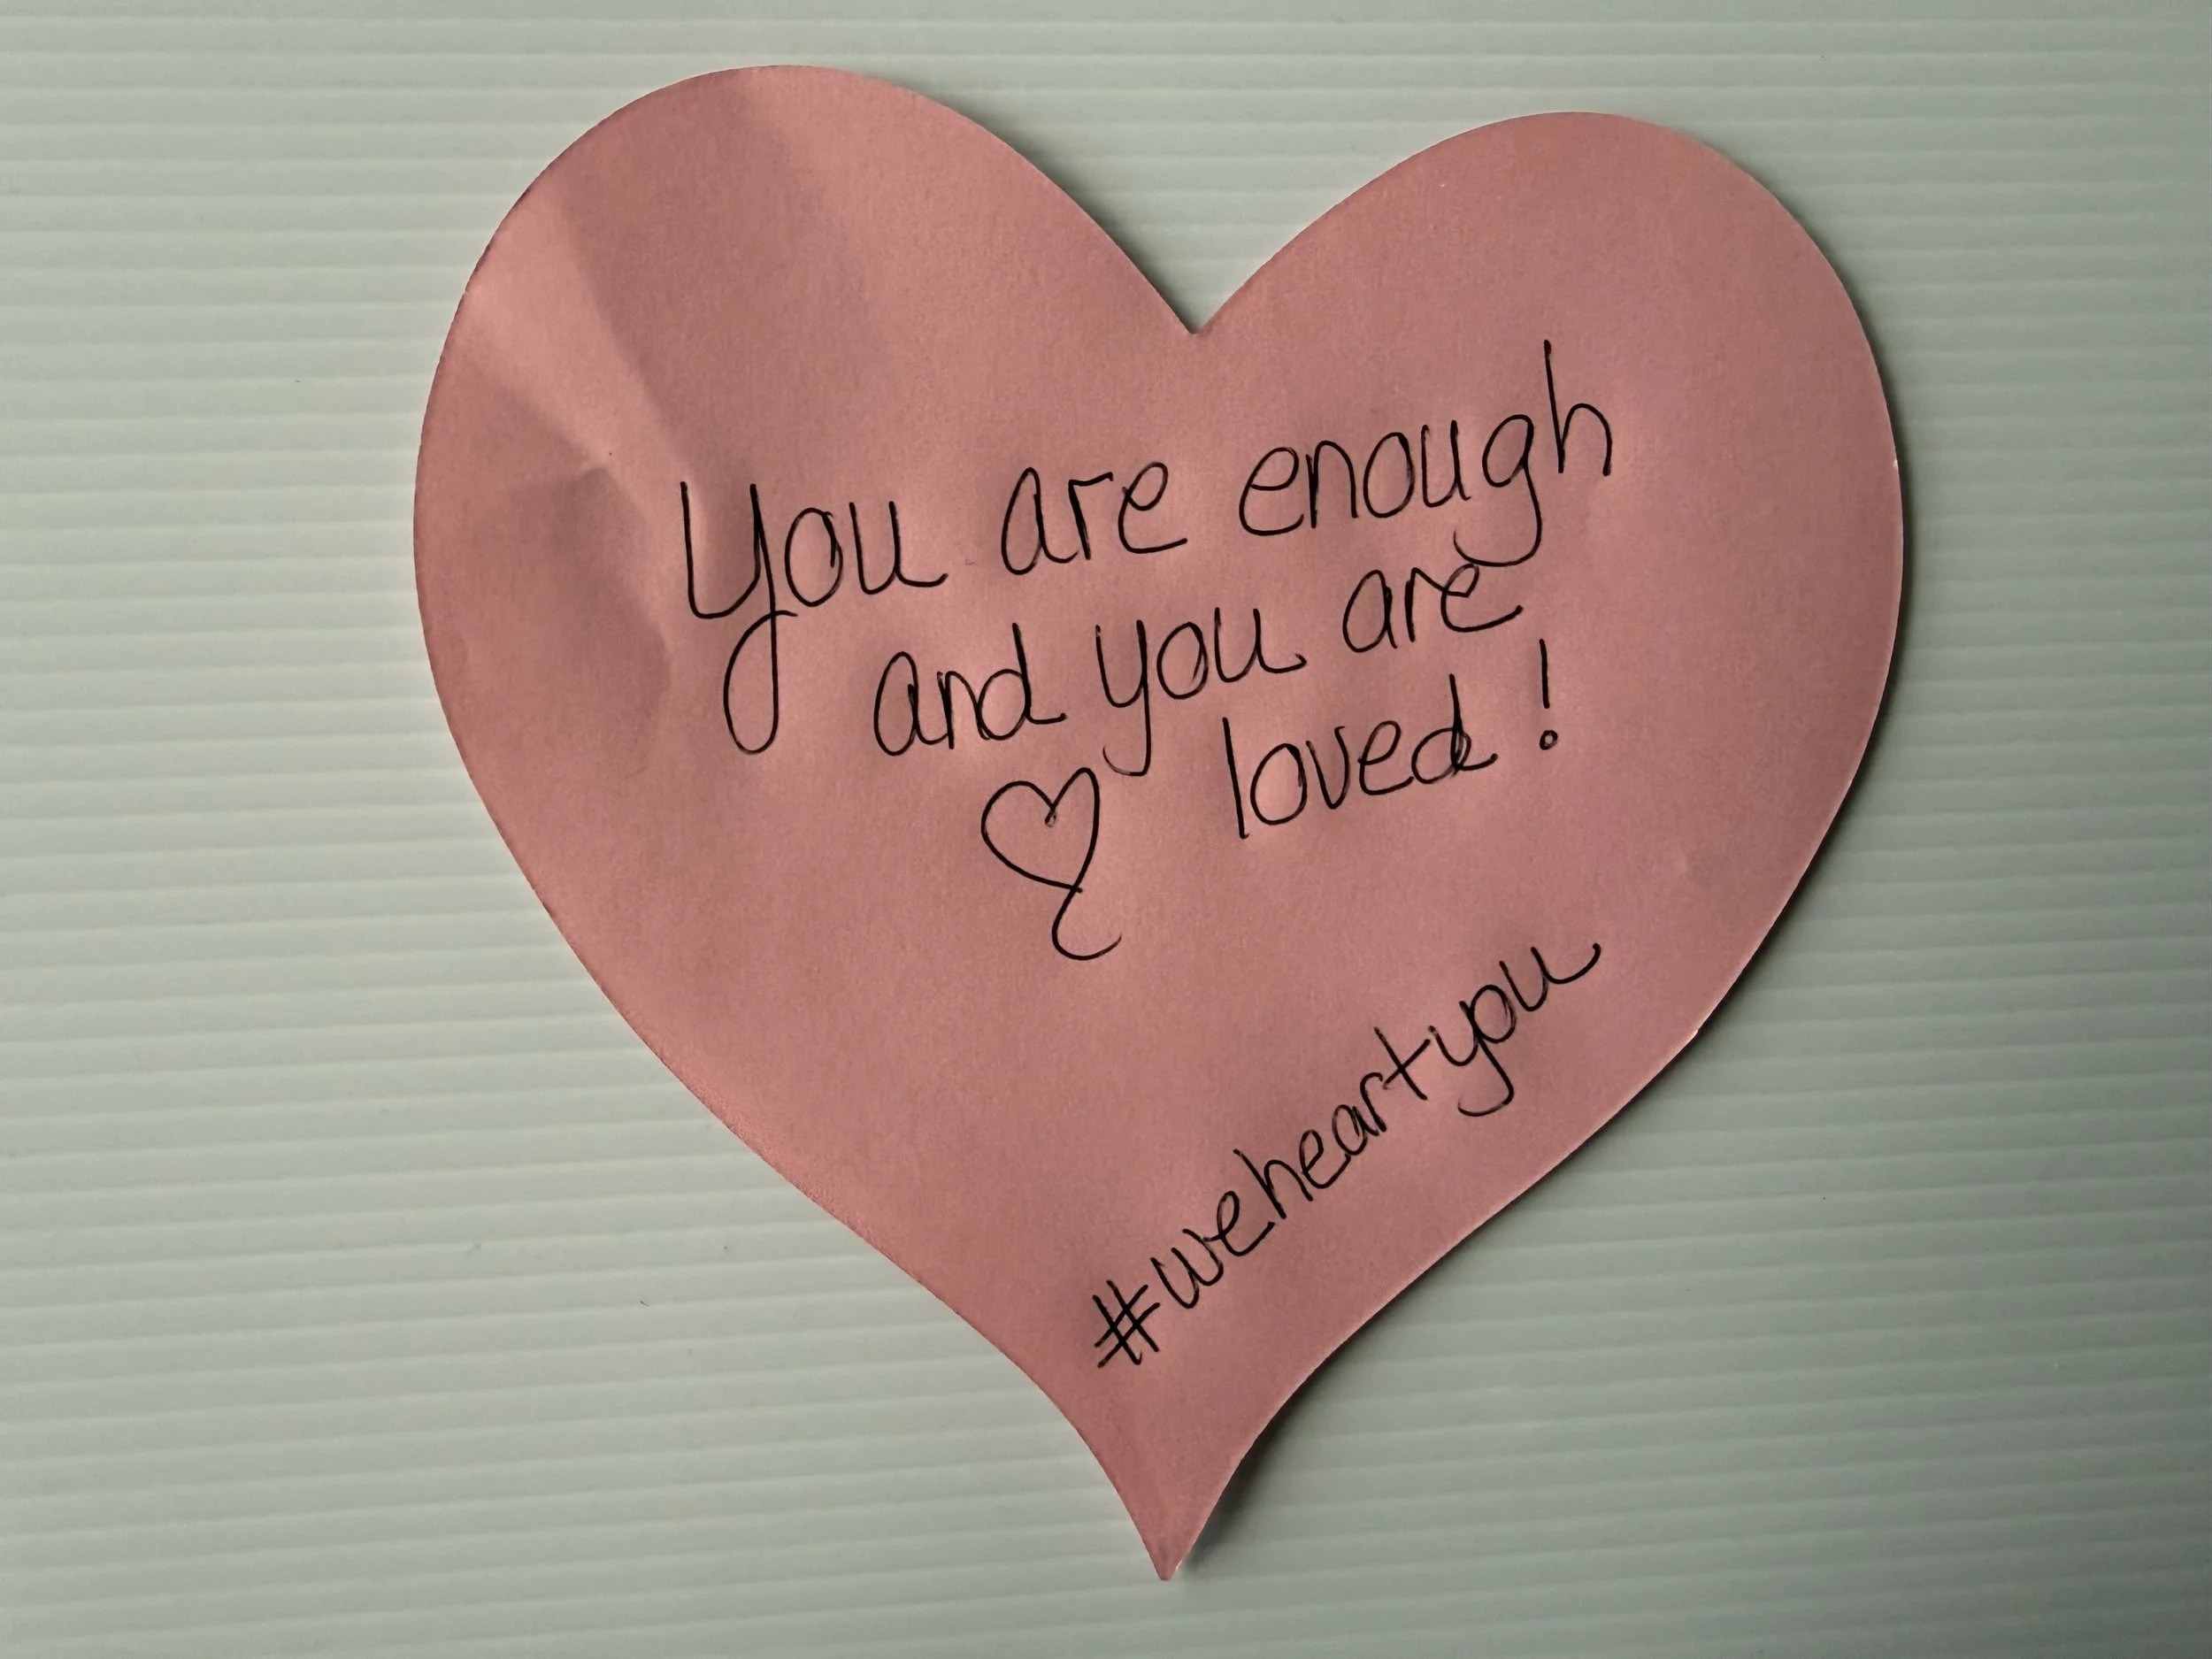 You are enough
and you are
loved!
#weheartyou